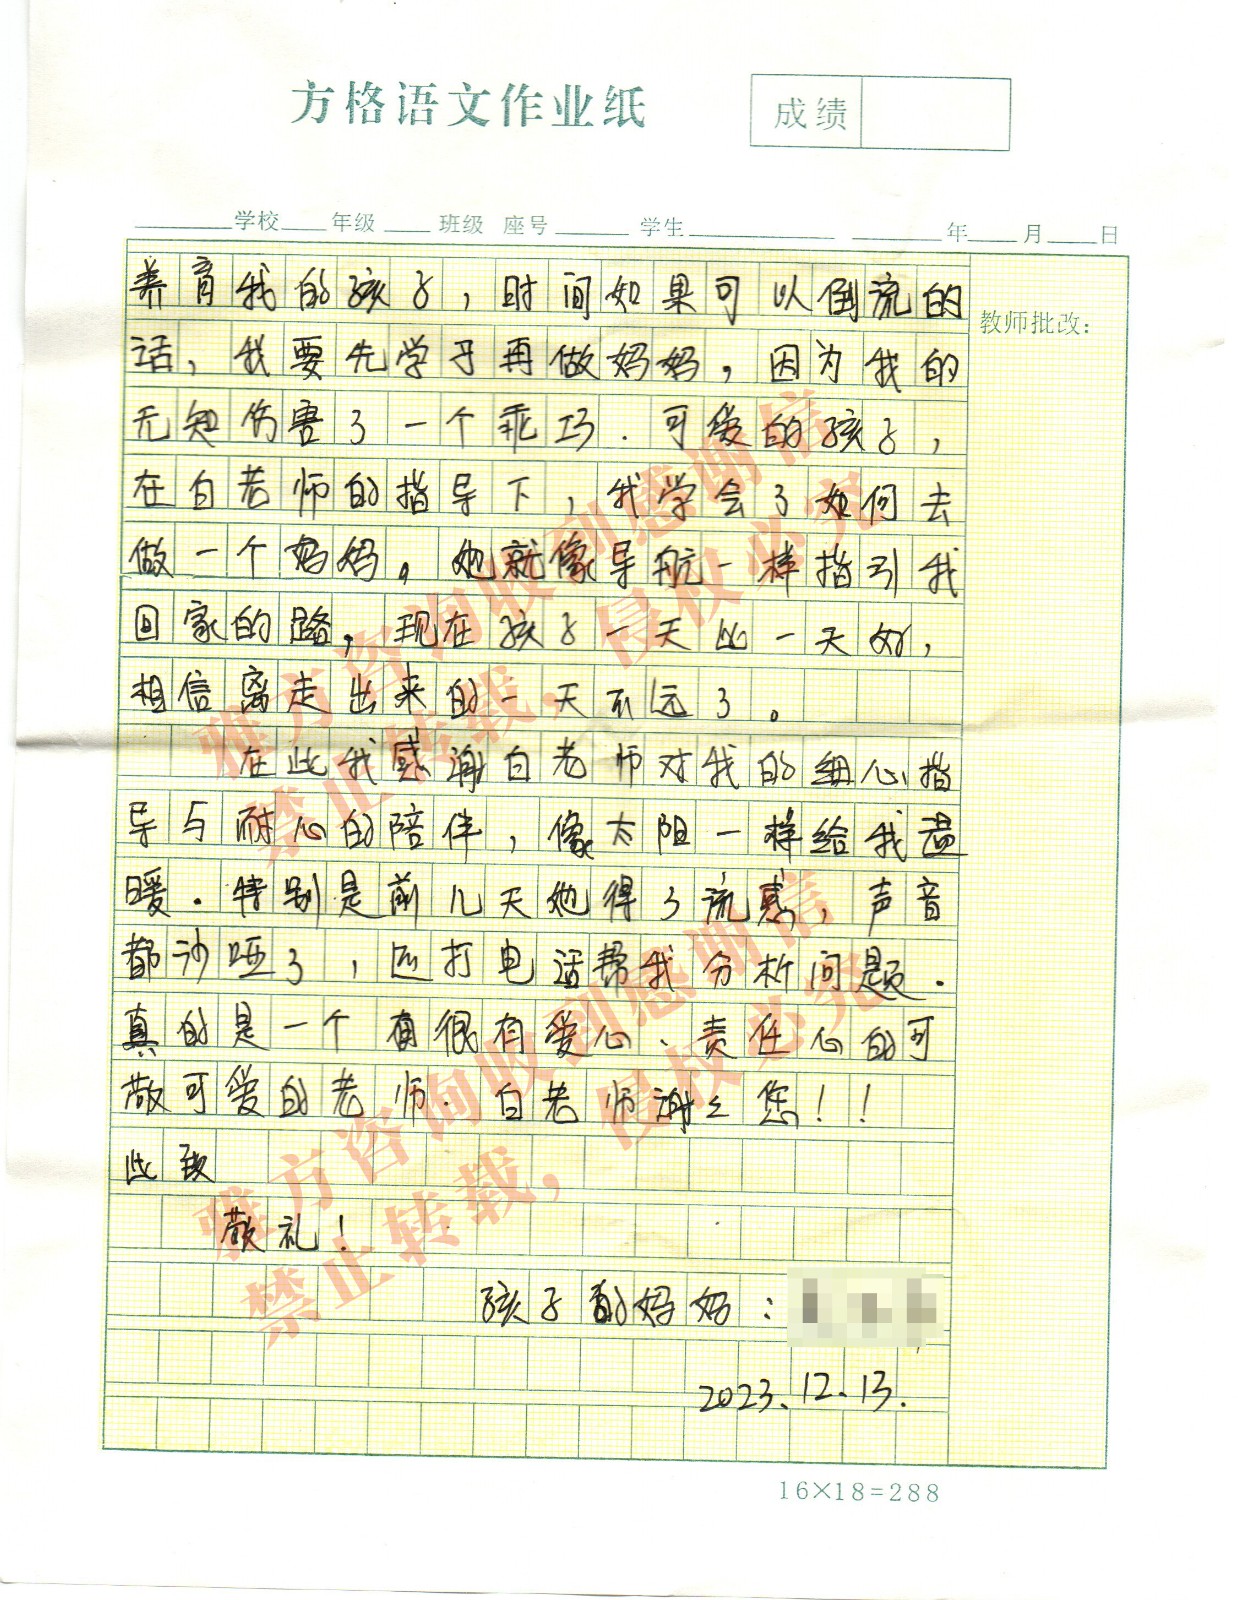 方格语文作业纸
成绩
学校 年级 班级 座号 学生 年 月 日
教师批改：
养育我的孩子，时间如果可以倒流的
话，我要先学习再做妈妈，因为我的
无知伤害了一个乖巧.可爱的孩子，
在白老师的指导下，我学会了如何去
做一个妈妈。她就像导航一样指引我
回家的路，现在孩子一天比一天好，
相信离走出来的一天不远了。
在此我感谢白老师对我的细心指
导与耐心的陪伴，像太阳一样给我温
暖.特别是前几天她得了流感，声音
都沙哑了，还打电话帮我分析问题.
真的是一个有很有爱心、责任心的可
敬可爱的老师.白老师谢谢您！！
此致
敬礼！
孩子的妈妈：
2023.12.13.
16×18=288
雅方咨询收到感谢信
禁止转载，侵权必究
雅方咨询收到感谢信
禁止转载，侵权必究